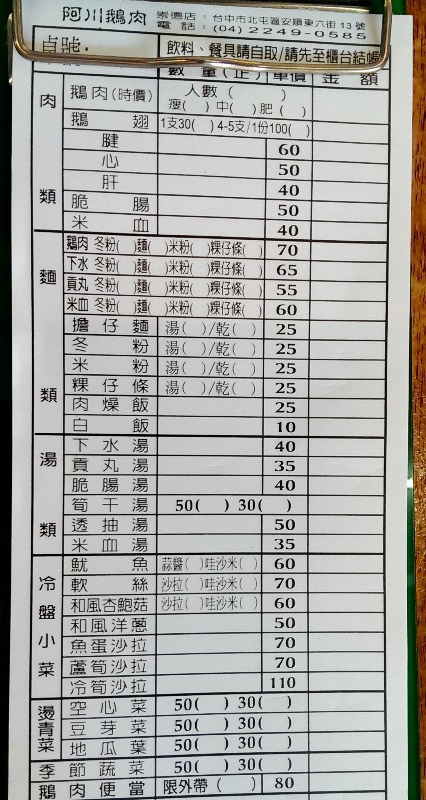 阿川鵝肉 崇德店：台中市北屯區安順東六街13號
電話：(04)2249-0585
貞號： 飲料、餐具請自取/請先至櫃台結帳
數量(正) 單價 金額
肉類
鵝肉(時價) 人數( )
瘦( )中( )肥( )
鵝翅 1支30( ) 4-5支/1份100( )
腱 60
心 50
肝 40
脆腸 50
米血 40
麵類
鵝肉 冬粉( )麵( )米粉( )粿仔條( ) 70
下水 冬粉( )麵( )米粉( )粿仔條( ) 65
貢丸 冬粉( )麵( )米粉( )粿仔條( ) 55
米血 冬粉( )麵( )米粉( )粿仔條( ) 60
擔仔麵 湯( )/乾( ) 25
冬粉 湯( )/乾( ) 25
米粉 湯( )/乾( ) 25
粿仔條 湯( )/乾( ) 25
肉燥飯 25
白飯 10
湯類
下水湯 40
貢丸湯 35
脆腸湯 40
筍干湯 50( ) 30( )
透抽湯 50
米血湯 35
冷盤小菜
魷魚 蒜醬( )哇沙米( ) 60
軟絲 沙拉( )哇沙米( ) 70
和風杏鮑菇 沙拉( )哇沙米( ) 60
和風洋蔥 50
魚蛋沙拉 70
蘆筍沙拉 70
冷筍沙拉 110
燙青菜
空心菜 50( ) 30( )
豆芽菜 50( ) 30( )
地瓜葉 50( ) 30( )
季節蔬菜 50( ) 30( )
鵝肉便當 限外帶( ) 80